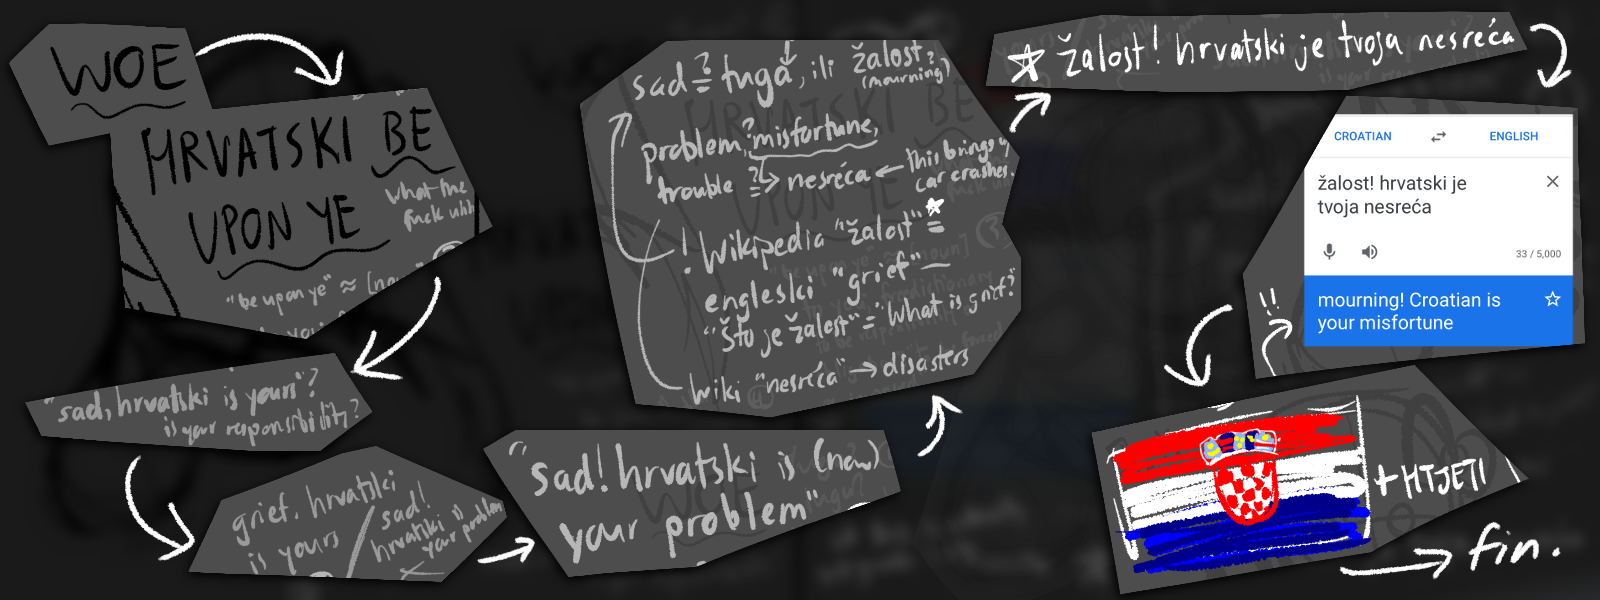 WOE
HRVATSKI BE
UPON YE
what the
fuck
"be upon ye" ≈
"sad, hrvatski is yours"?
is your responsibility?
grief. hrvatski
is yours
/ sad!
hrvatski is
your problem
"sad! hrvatski is (now)
your problem"
sad ?= tuga, ili žalost?
(mourning)
problem, ? misfortune,
trouble ?= → nesreća ← this brings
car crashes.
! Wikipedia "žalost" =
engleski "grief" –
"Što je žalost" = "What is grief?"
Wiki "nesreća" → disasters
☆ žalost! hrvatski je tvoja nesreća
CROATIAN ENGLISH
žalost! hrvatski je
tvoja nesreća
33 / 5,000
!!
mourning! Croatian is
your misfortune
+ HTJETI
fin.